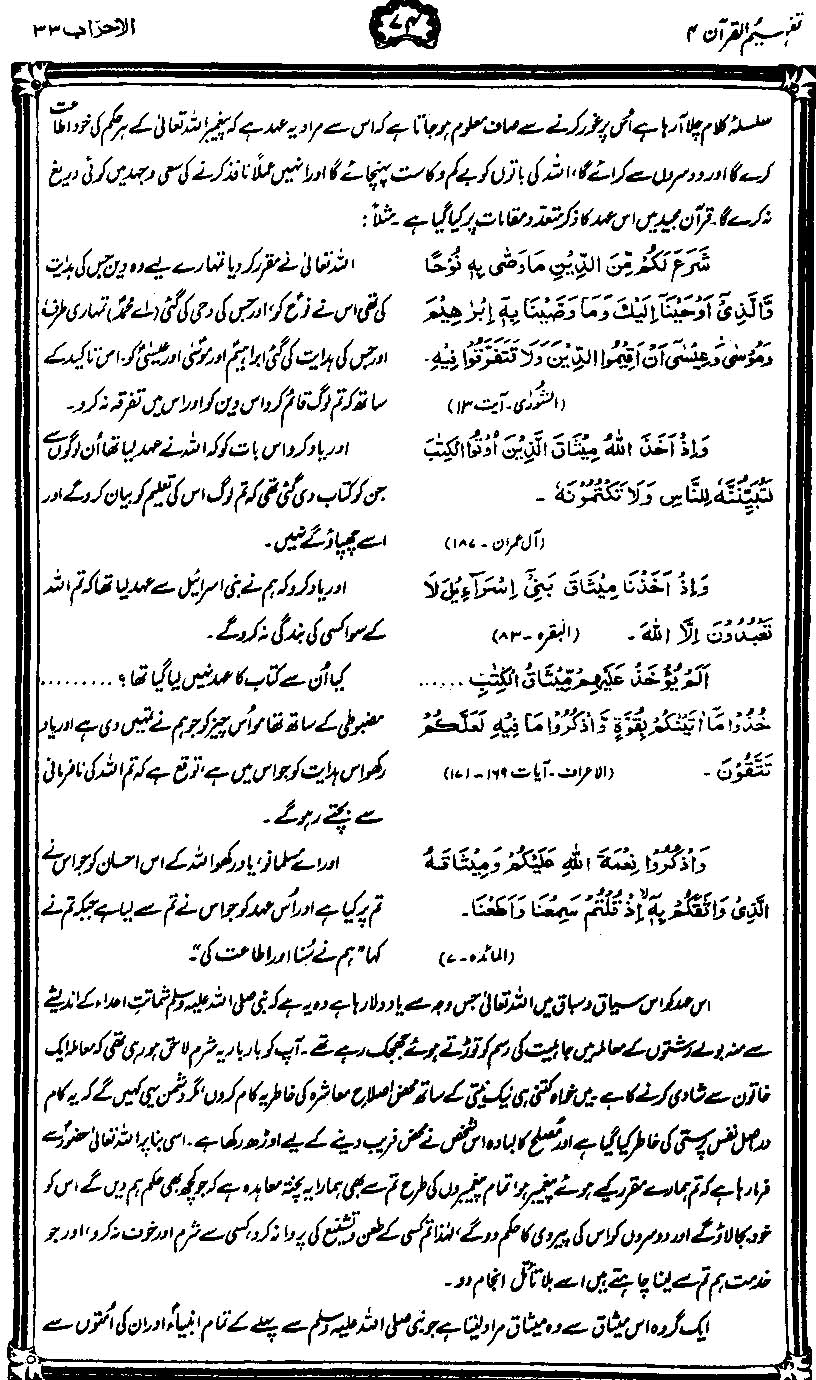 تفہیم القرآن ۴
۷۴
الاحزاب ۳۳
سلسلۂ کلام چلا آ رہا ہے اُس پر غور کرنے سے صاف معلوم ہو جاتا ہے کہ اس سے مراد یہ عہد ہے کہ پیغمبر اللہ تعالیٰ کے ہر حکم کی خود اطاعت
کرے گا اور دوسروں سے کرائے گا، اللہ کی باتوں کو بے کم و کاست پہنچائے گا اور انہیں عملاً نافذ کرنے کی سعی و جہد میں کوئی دریغ
نہ کرے گا۔ قرآن مجید میں اس عہد کا ذکر متعدد مقامات پر کیا گیا ہے۔ مثلاً:
شَرَعَ لَكُمْ مِّنَ الدِّيْنِ مَا وَصّٰى بِهٖ نُوْحًا
وَّالَّذِيْٓ اَوْحَيْنَآ اِلَيْكَ وَمَا وَصَّيْنَا بِهٖٓ اِبْرٰهِيْمَ
وَمُوْسٰى وَعِيْسٰٓى اَنْ اَقِيْمُوا الدِّيْنَ وَلَا تَتَفَرَّقُوْا فِيْهِ۔
(الشُّورٰی۔ آیت ۱۳)
اللہ تعالیٰ نے مقرر کر دیا تمہارے لیے وہ دین جس کی ہدایت
کی تھی اس نے نوحؑ کو، اور جس کی وحی کی گئی (اے محمدؐ) تمہاری طرف،
اور جس کی ہدایت کی گئی ابراہیمؑ اور موسیٰؑ اور عیسیٰؑ کو۔ اس تاکید کے
ساتھ کہ تم لوگ قائم کرو اس دین کو اور اس میں تفرقہ نہ کرو۔
وَاِذْ اَخَذَ اللّٰهُ مِيْثَاقَ الَّذِيْنَ اُوْتُوا الْكِتٰبَ
لَتُبَيِّنُنَّهٗ لِلنَّاسِ وَلَا تَكْتُمُوْنَهٗ ۔
(آل عمران۔ ۱۸۷)
اور یاد کرو اس بات کو کہ اللہ نے عہد لیا تھا اُن لوگوں سے
جن کو کتاب دی گئی تھی کہ تم لوگ اس کی تعلیم کو بیان کرو گے اور
اسے چھپاؤ گے نہیں۔
وَاِذْ اَخَذْنَا مِيْثَاقَ بَنِيْٓ اِسْرَآءِيْلَ لَا
تَعْبُدُوْنَ اِلَّا اللّٰهَ ۔ (البقرہ۔ ۸۳)
اور یاد کرو کہ ہم نے بنی اسرائیل سے عہد لیا تھا کہ تم اللہ
کے سوا کسی کی بندگی نہ کرو گے۔
اَلَمْ يُؤْخَذْ عَلَيْهِمْ مِّيْثَاقُ الْكِتٰبِ ......
خُذُوْا مَآ اٰتَيْنٰكُمْ بِقُوَّةٍ وَّاذْكُرُوْا مَا فِيْهِ لَعَلَّكُمْ
تَتَّقُوْنَ ۔ (الاعراف۔ آیات ۱۶۹۔۱۷۱)
کیا اُن سے کتاب کا عہد نہیں لیا گیا تھا؟ .........
مضبوطی کے ساتھ تھامو اُس چیز کو جو ہم نے تمہیں دی ہے اور یاد
رکھو اس ہدایت کو جو اس میں ہے، توقع ہے کہ تم اللہ کی نافرمانی
سے بچتے رہو گے۔
وَاذْكُرُوْا نِعْمَةَ اللّٰهِ عَلَيْكُمْ وَمِيْثَاقَهُ
الَّذِيْ وَاثَقَكُمْ بِهٖٓ اِذْ قُلْتُمْ سَمِعْنَا وَاَطَعْنَا۔
(المائدہ۔ ۷)
اور اے مسلمانو، یاد رکھو اللہ کے اس احسان کو جو اس نے
تم پر کیا ہے اور اُس عہد کو جو اس نے تم سے لیا ہے جبکہ تم نے
کہا "ہم نے سُنا اور اطاعت کی"۔
اس عہد کو اس سیاق و سباق میں اللہ تعالیٰ جس وجہ سے یاد دلا رہا ہے وہ یہ ہے کہ نبی صلی اللہ علیہ وسلم شماتتِ اعداء کے اندیشے
سے منہ بولے رشتوں کے معاملہ میں جاہلیت کی رسم کو توڑتے ہوئے جھجک رہے تھے۔ آپ کو بار بار یہ شرم لاحق ہو رہی تھی کہ معاملہ ایک
خاتون سے شادی کرنے کا ہے۔ میں خواہ کتنی ہی نیک نیتی کے ساتھ محض اصلاح معاشرہ کی خاطر یہ کام کروں، مگر دشمن یہی کہیں گے کہ یہ کام
دراصل نفس پرستی کی خاطر کیا گیا ہے اور مُصلح کا لبادہ اس شخص نے محض فریب دینے کے لیے اوڑھ رکھا ہے۔ اسی بنا پر اللہ تعالیٰ حضورؐ سے
فرما رہا ہے کہ تم ہمارے مقرر کیے ہوئے پیغمبر ہو، تمام پیغمبروں کی طرح تم سے بھی ہمارا یہ پختہ معاہدہ ہے کہ جو کچھ بھی حکم ہم دیں گے اس کو
خود بجا لاؤ گے اور دوسروں کو اس کی پیروی کا حکم دو گے، لہٰذا تم کسی کے طعن و تشنیع کی پروا نہ کرو، کسی سے شرم اور خوف نہ کرو، اور جو
خدمت ہم تم سے لینا چاہتے ہیں اسے بلا تأمّل انجام دو۔
ایک گروہ اس میثاق سے وہ میثاق مراد لیتا ہے جو نبی صلی اللہ علیہ وسلم سے پہلے کے تمام انبیاءؑ اور ان کی اُمتوں سے